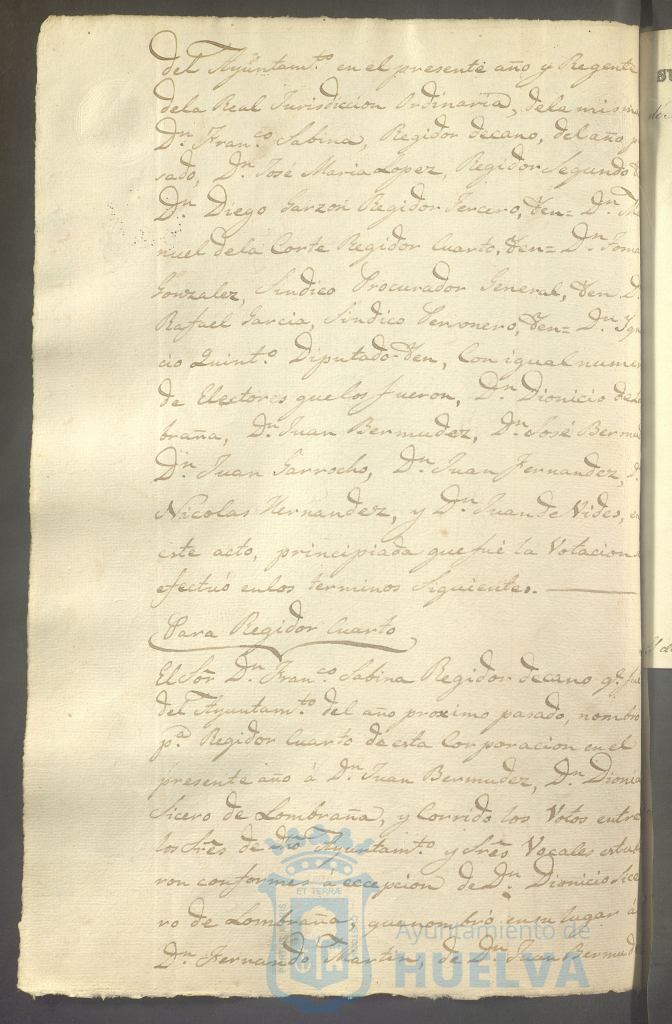 del Ayuntam.to en el presente año y Regente
dela Real Jurisdiccion Ordinaria, dela misma
Dn. Franco. Sabina, Regidor decano, del año p
sado, Dn. José Maria Lopez, Regidor Segundo
Dn. Diego Garzon Regidor Tercero, Ten= Dn. M
nuel dela Corte Regidor Cuarto, Ten= Dn. Toma
Gonzalez, Sindico Procurador General, Ten D.
Rafael Garcia, Sindico Personero, Ten= Dn. Ygn
cio Quint.o Diputado Ten, Con igual nume
de Electores quelos fueron, Dn. Dionicio de
braña, Dn. Juan Bermudez, Dn. José Bermu
Dn. Juan Garrocho, Dn. Juan Fernandez,
Nicolas Hernandez, y Dn. Juan de Vides, en
este acto, principiada que fué la Votacion
efectuó enlos terminos siguientes.
Para Regidor Cuarto
El Sor. Dn. Franco. Sabina Regidor decano q.e fué
del Ayuntam.to del año proximo pasado, nombro
p.a Regidor Cuarto de esta Corporacion en el
presente año á Dn. Juan Bermudez, Dn. Dioni
Sicero de Lombraña, y Corrido los Votos entre
los Sres. de dho. Ayuntam.to y Sres. Vocales estu
ron conformes á ecepcion de Dn. Dionicio Sice
ro de Lombraña, que nombró en su lugar á
Dn. Fernando Martin, de Dn. Juan Bermud
Ayuntamiento de
HUELVA